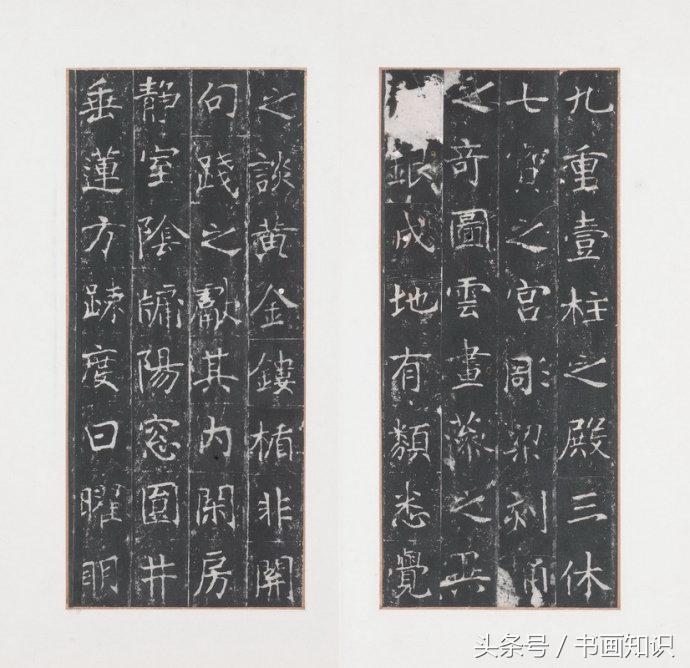 九重壹柱之殿三休
七寶之宮彫梁刻
之奇圖雲畫藻之異
銀成地有類悉覺
之談黃金鏤楯非關
句踐之獻其内閑房
靜室陰牖陽窓圓井
垂蓮方踈度日曜明
头条号 / 书画知识